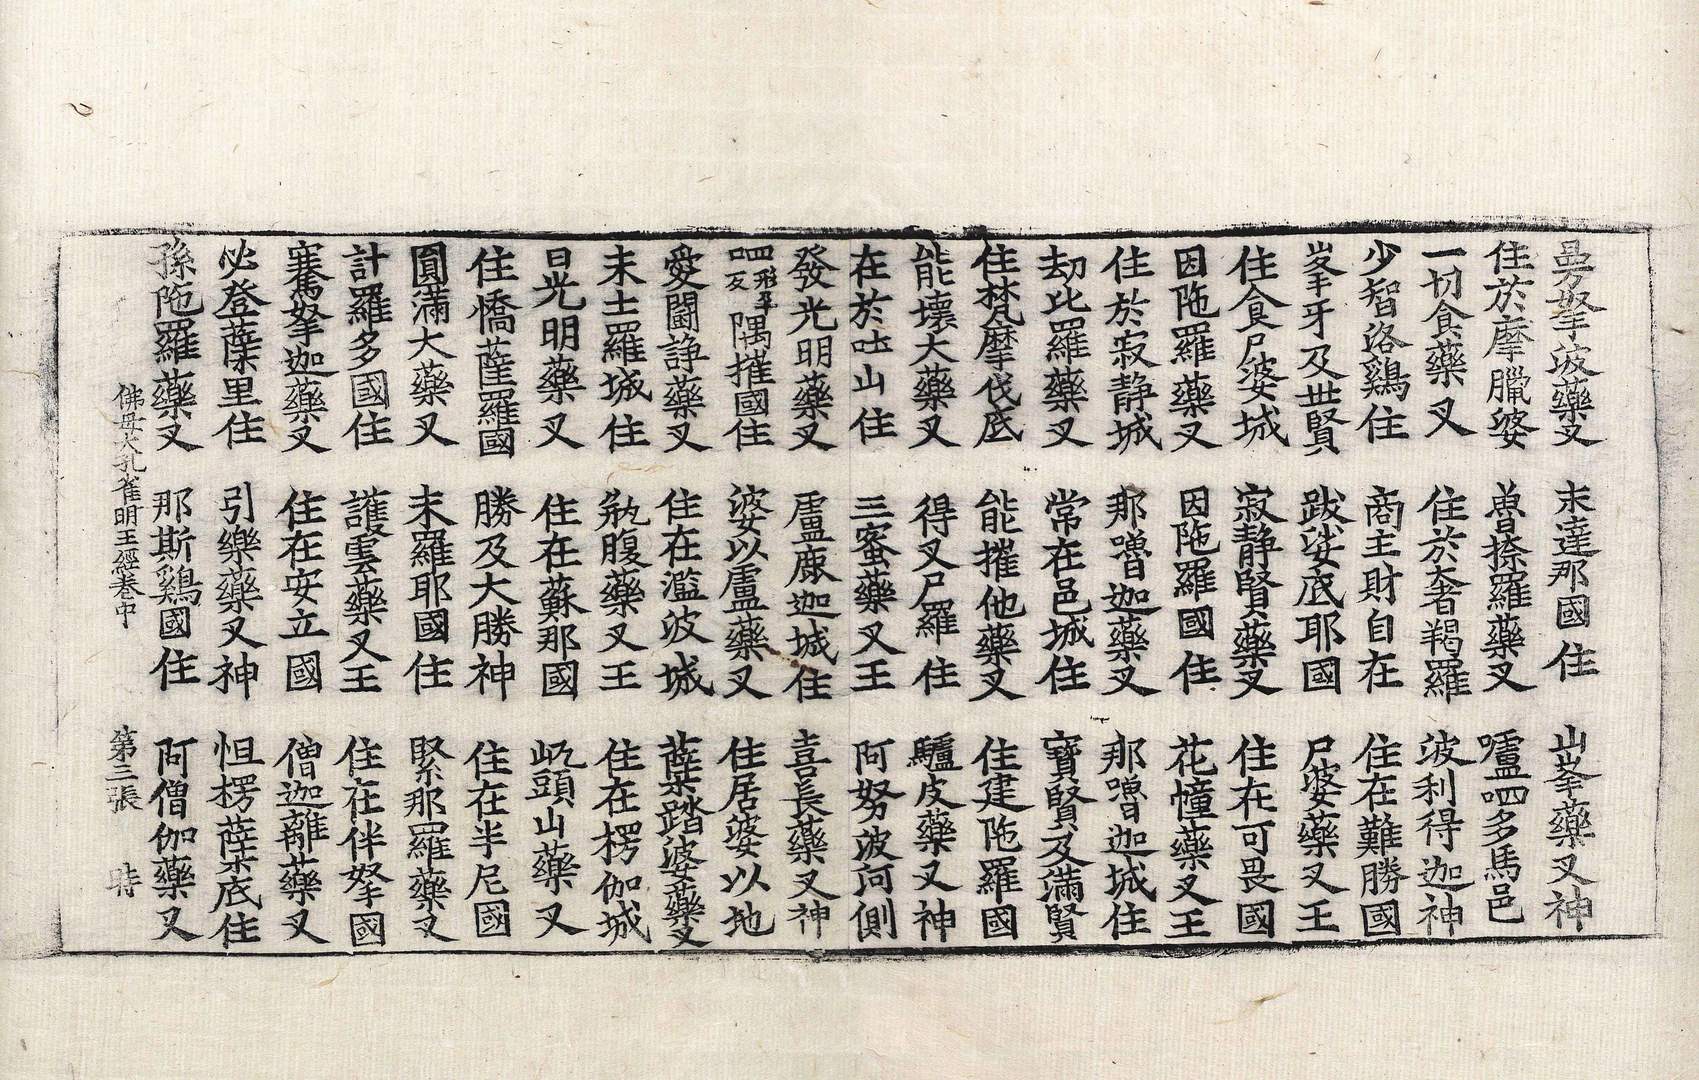 曼拏波藥叉　末達那國住　山峯藥叉神
住於摩臘婆　魯捺羅藥叉　嚧呬多馬邑
一切食藥叉　住於奢羯羅　波利得迦神
少智洛鷄住　商主財自在　住在難勝國
峯牙及世賢　跋娑底耶國　尸婆藥叉王
住食尸婆城　寂靜賢藥叉　住在可畏國
因陁羅藥叉　因陁羅國住　花幢藥叉王
住於寂靜城　那嚕迦藥叉　那嚕迦城住
劫比羅藥叉　常在邑城住　寶賢及滿賢
住梵摩伐底　能摧他藥叉　住建陁羅國
能壞大藥叉　得叉尸羅住　驢皮藥叉神
在於吐山住　三蜜藥叉王　阿努波河側
發光明藥叉　盧鹿迦城住　喜長藥叉神
呬形孕反隅摧國住　婆以盧藥叉　住居婆以地
愛鬪諍藥叉　住在濫波城　蘗踏婆藥叉
末土羅城住　缾腹藥叉王　住在楞伽城
日光明藥叉　住在蘇那國　屼頭山藥叉
住憍薩羅國　勝及大勝神　住在半尼國
圓滿大藥叉　末羅耶國住　緊那羅藥叉
計羅多國住　護雲藥叉王　住在伴拏國
騫拏迦藥叉　住在安立國　僧迦離藥叉
必登蘗里住　引樂藥叉神　怛楞蘗底住
孫陁羅藥叉　那斯鷄國住　阿僧伽藥叉
佛母大孔雀明王經卷中　第三張　時